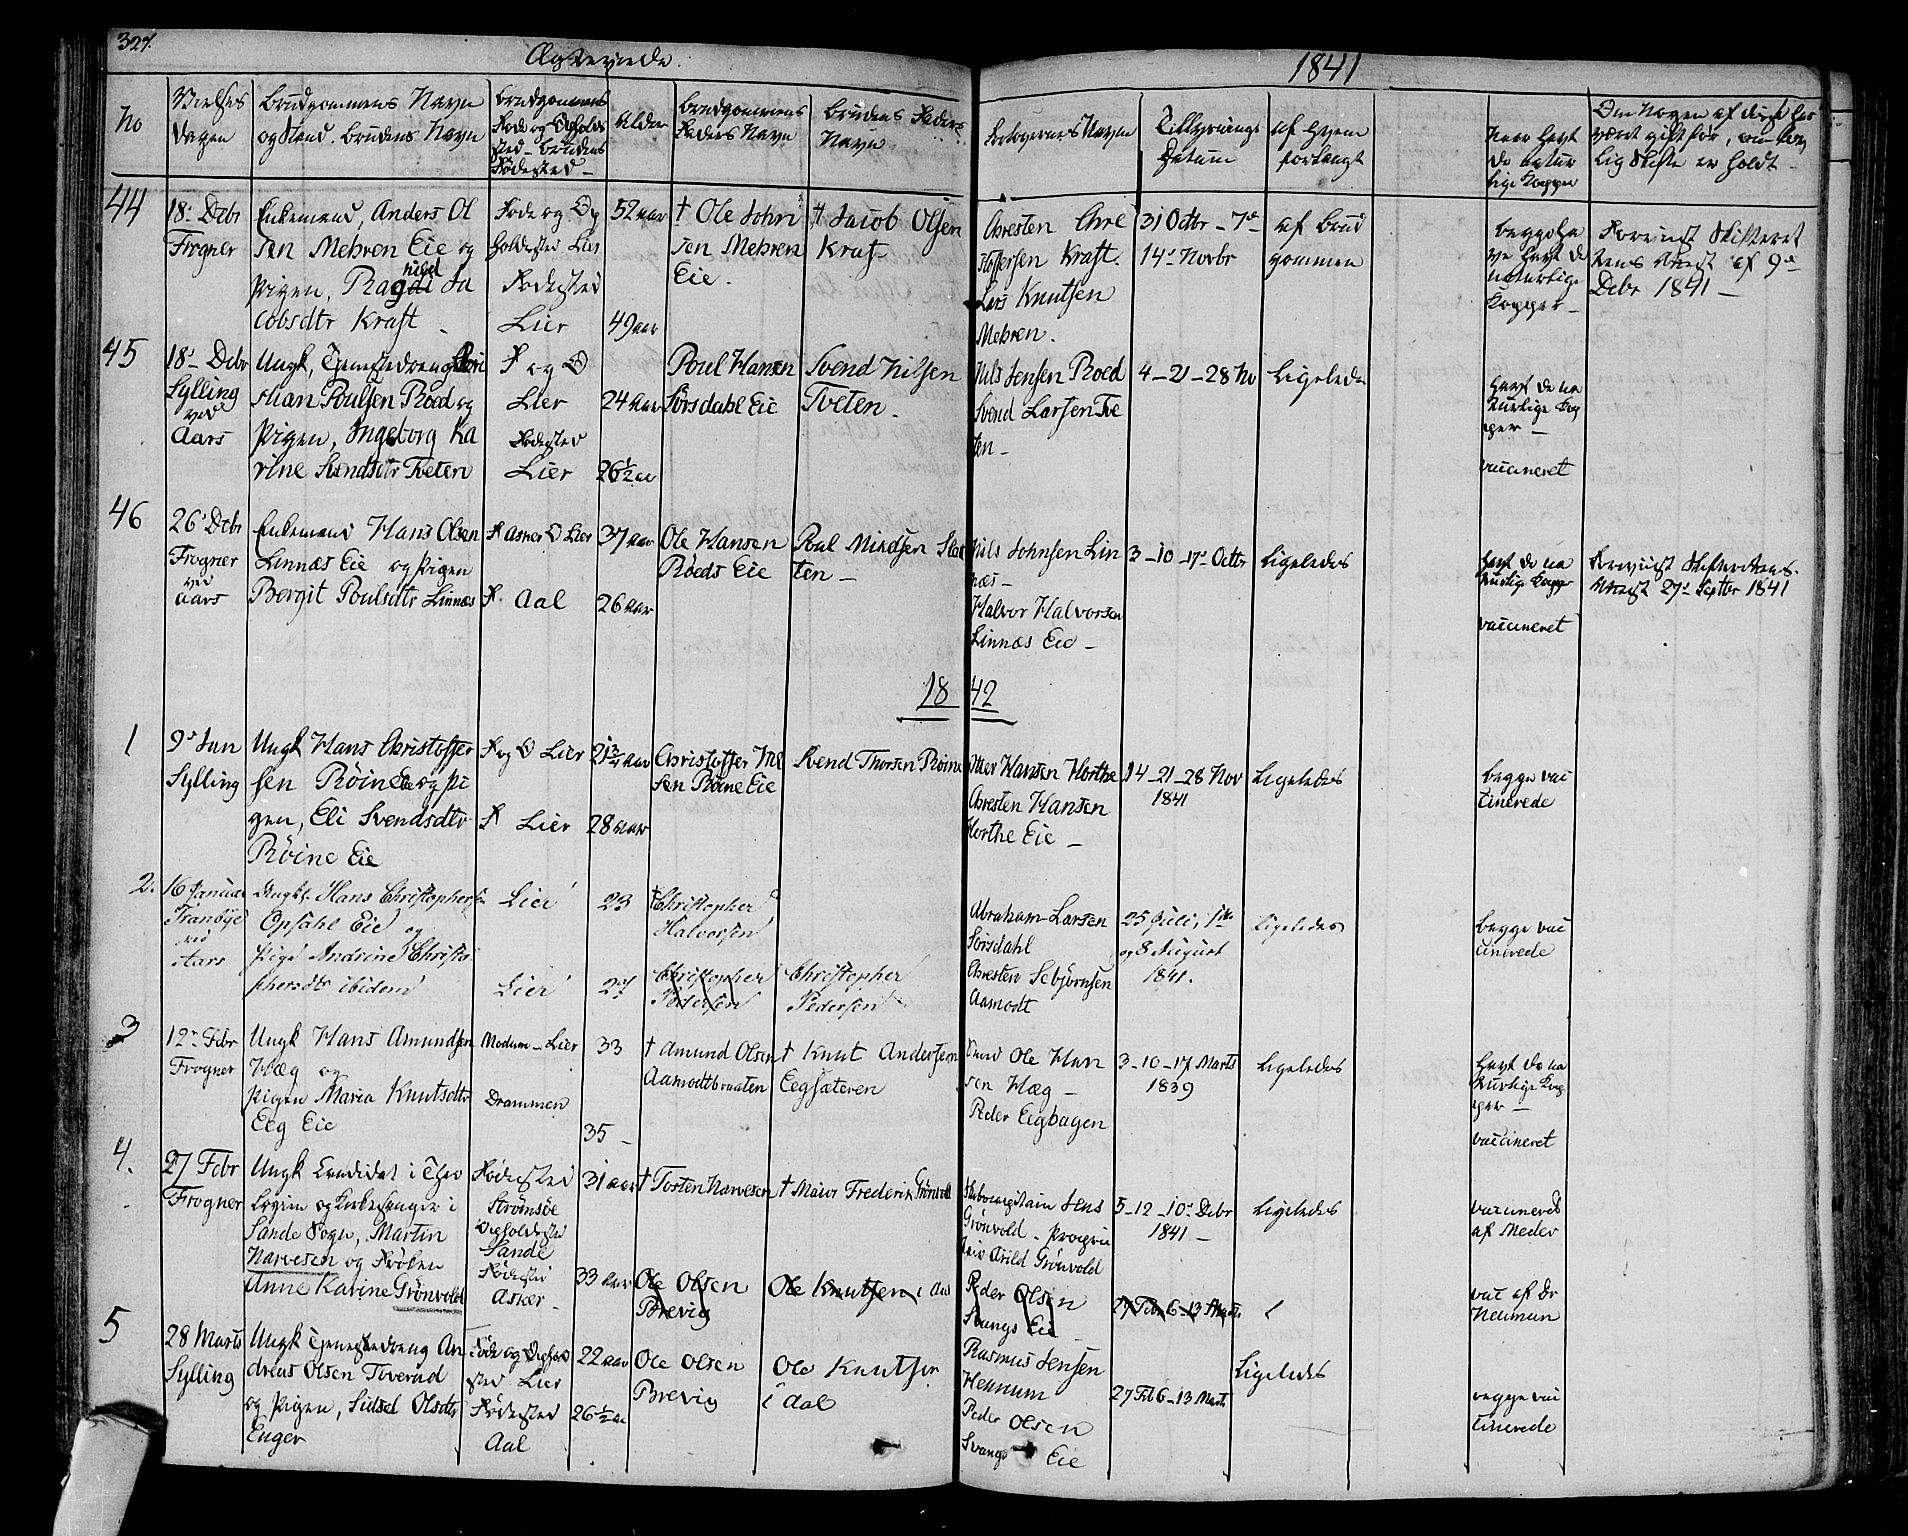 327.
Ægteviede.
1841
No
Vielses Dagen
Brudgommens Navn og Stand. Brudens Navn
Brudgommens Føde og Opholds sted - Brudens Fødested -
Alder
Brudgommens Faders Navn
Brudens Faders Navn
Forlovernes Navn
Tillysnings Datum
af hvem forlangt
naar havt de natur lige Kopper
Om Nogen af disse har været gift før, om lov lig Skifte er holdt -
44
18- Debr Frogner
Enkemand, Anders Ol
sen Mehren Eie og
Pigen, Ragnild Ja
cobsdtr Kraft -
Føde og Op
holdssted Lier
Fødested
Lier
52 aar
49 aar
† Ole John
sen Mehren
Eie.
† Jacob Olsen
Kraft
Chresten Chri
stoffersen Kraft.
Lars Knutsen
Mehren.
31 Octbr - 7de
14de Novbr
af Brud
gommen
begge ha
ve havt de
naturlige
Kopper -
Foreviist Skifteret
tens Attest af 9de
Debr 1841 -
45
18- Debr
Sylling
ved
Aars
Ungk, Tjenestedreng Chri
stian Poulsen Roed og
Pigen, Ingeborg Ka
rine Svendsdtr Tveten
F og O
Lier
Fødested
Lier
24 aar
26 1/2 aar
Poul Hansen
Sørsdahl Eie
Svend Nilsen
Tveten -
Nils Jensen Roed
Svend Larsen Tve
ten -
4 - 21 - 28 No
Ligeledes
havt de na
turlige Kop
per -
vaccineret
46
26- Debr
Frogner
ved
Aars
Enkemand Hans Olsen
Linnæs Eie og Pigen
Bergit Poulsdtr Linnæs
F Asker O Lier
F. Aal
37 aar
26 aar
Ole Hansen
Røeds Eie
Poul Slat
ten -
Nils Johnsen Lin
næs -
Halvor Halvorsen
Linnæs Eie -
3 - 10 - 17de Octbr
Ligeledes
havt de na
turlige Kopper
vaccineret
Foreviist Skifterettens
Attest 27de Septbr 1841
1842
1
9de Jan
Sylling
Ungk Hans Christoffer
sen Røine Eie og Pi
gen, Eli Svendsdtr
Røine Eie
F og O Lier
F Lier
21 3/4 aar
28 aar
Christoffer Nil
sen Røine Eie
Svend Thorsen Røine
Hansen Horthe
Chresten Hansen
Horthe Eie -
14 - 21 - 28 Nov
1841
Ligeledes
begge vac
cinerede
2.
16 Januar
Tranbye
ved
Aars
Ungk. Hans Christophersen
Opsahl Eie og
Pige Andrine Christo
phersdtr ibidem
Lier
Lier
23
27
† Christopher
Halvorsen
Christopher
Pedersen
Christopher
Pedersen
Abraham Larsen
Sørsdahl
Chresten Sebjørnsen
Aamodt
25 Juli, 1ste
og 8 August
1841.
Ligeledes
begge vac
cinerede
3
12- Febr
Frogner
Ungk Hans Amundsen
Hæg og
Pigen Maria Knutsdtr
Eeg Eie
Modum - Lier
Drammen
33
35 -
† Amund Olsen
Aamodtbraaten
† Knut Andersen
Eegsæteren
Ole Han
sen Hæg -
Peder Eeghagen
3 - 10 - 17 Marts
1839
Ligeledes
havt de na
turlige Kop
per -
vaccineret
4.
27 Febr
Frogner
Ungk Candidat i Theo
logien og Kirkesanger i
Sande Sogn, Martin
Narvesen og Frøken
Anne Karine Grønvold
Fødested
Strømsøe
Opholdssted
Sande
Fødested
Asker -
31 aar
33 aar
† Tosten Narvesen
† Maior Frederik Grønvold
Jens
Grønvold -
Arild Grønvold
5 - 12 - 10de Debr
1841 -
Ligeledes
vaccineret
af Meder
vac af Dr
Neuman
Ole Olsen
Brevig
Ole Knutsen i Aal
Peder Olsen
Svangs Eie
27 Feb 6 - 13 Marts
5
28 Marts
Sylling
Ungk Tjenestedreng An
dreas Olsen Tverud
og Pigen, Sidsel Olsdtr
Enger
Føde og Ophold
sted Lier
Fødested
Aal
22 aar
26 1/2 aar
Ole Olsen
Brevig
Ole Knutsen
i Aal
Rasmus Jensen
Hennum
Peder Olsen
Svangs Eie
27 Feb 6 - 13 Marts
Ligeledes
begge vac
cinerede